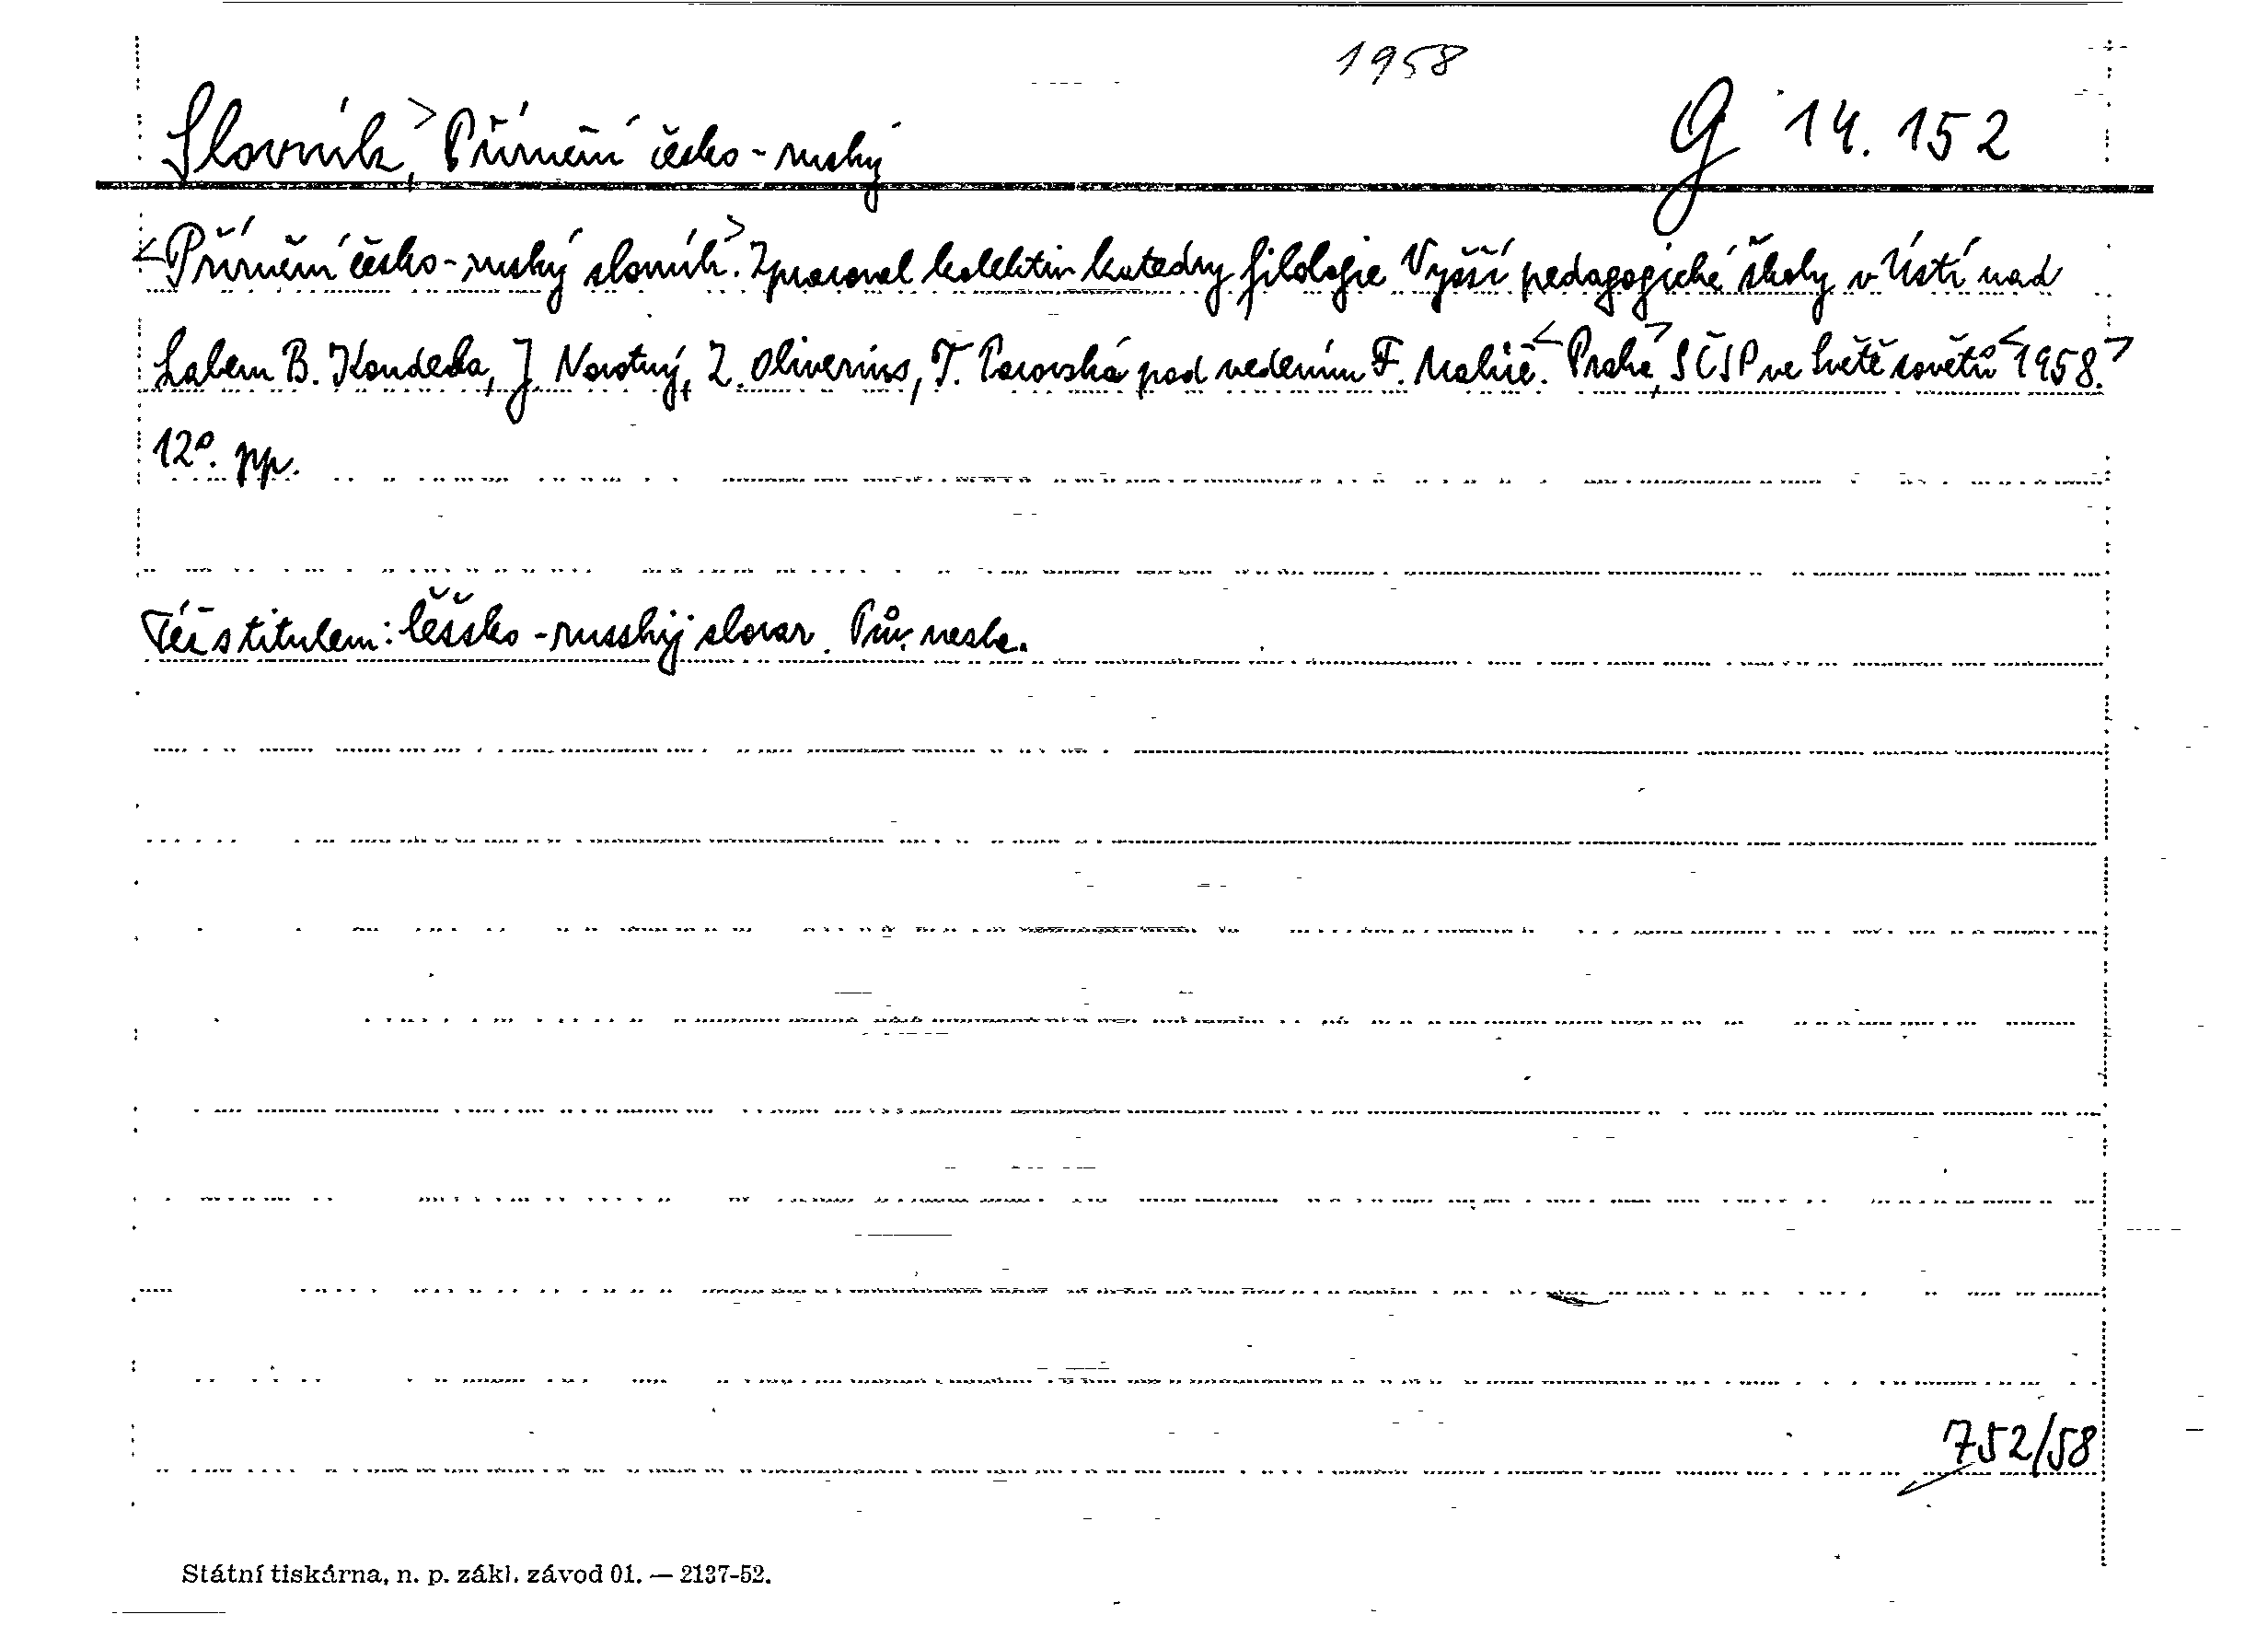 1958
Slovník, Příruční česko-ruský G 14.152
<Příruční česko-ruský slovník.> Zpracoval kolektiv katedry filologie Vyšší pedagogické školy v Ústí nad
Labem B. Kondela, J. Novotný, Z. Oliverius, T. Pacovská pod vedením F. Malíře. <Praha,> SČSP ve Světě sovětů <1958.>
12°. pp.
Též s titulem: Češsko-russkij slovar. Pův. neske.
752/58
Státní tiskárna, n. p. zákl. závod 01. — 2137-52.